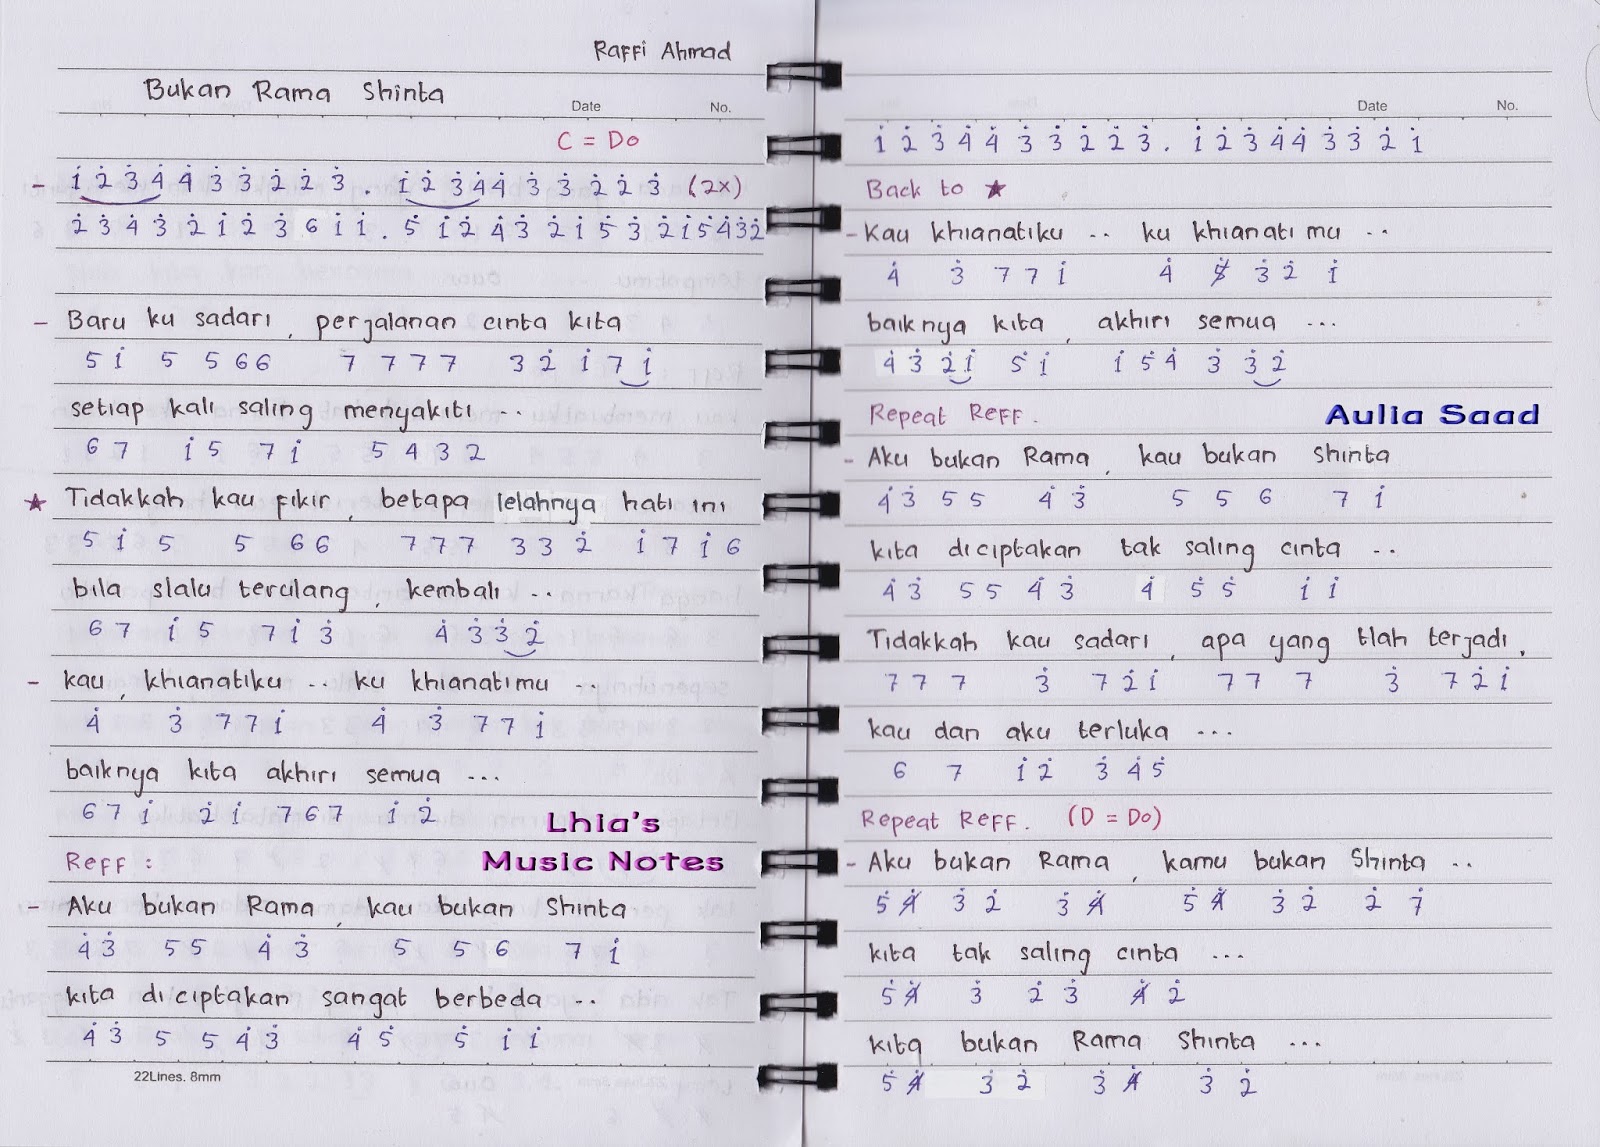 Raffi Ahmad
Bukan Rama Shinta
Date No.
C = Do
- 1̇ 2̇ 3̇ 4̇ 4̇ 3̇ 3̇ 2̇ 2̇ 3̇ . 1̇ 2̇ 3̇ 4̇ 4̇ 3̇ 3̇ 2̇ 2̇ 3̇ (2x)
2̇ 3̇ 4̇ 3̇ 2̇ 1̇ 2̇ 3̇ 6 1̇ 1̇ . 5̇ 1̇ 2̇ 4̇ 3̇ 2̇ 1̇ 5̇ 3̇ 2̇ 1̇ 5̇ 4̇ 3̇ 2̇
- Baru ku sadari , perjalanan cinta kita
5 1̇ 5 5 6 6 7 7 7 7 3 2̇ 1̇ 7 1̇
setiap kali saling menyakiti ..
6 7 1̇ 5 7 1̇ 5 4 3 2
★ Tidakkah kau fikir , betapa lelahnya hati ini
5 1̇ 5 5 6 6 7 7 7 3 3 2̇ 1̇ 7 1̇ 6
bila slalu terulang , kembali ..
6 7 1̇ 5 7 1̇ 3̇ 4̇ 3̇ 3̇ 2̇
- kau , khianatiku .. ku khianatimu ..
4̇ 3̇ 7 7 1̇ 4̇ 3̇ 7 7 1̇
baiknya kita akhiri semua ...
6 7 1̇ 2̇ 1̇ 7 6 7 1̇ 2̇
Lhia's
Music Notes
Reff :
- Aku bukan Rama , kau bukan Shinta
4̇ 3̇ 5 5 4̇ 3̇ 5 5 6 7 1̇
kita diciptakan sangat berbeda ..
4̇ 3̇ 5 5 4̇ 3̇ 4̇ 5̇ 5̇ 1̇ 1̇
22Lines. 8mm
Date No.
1̇ 2̇ 3̇ 4̇ 4̇ 3̇ 3̇ 2̇ 2̇ 3̇ . 1̇ 2̇ 3̇ 4̇ 4̇ 3̇ 3̇ 2̇ 1̇
Back to ★
- Kau khianatiku .. ku khianatimu ..
4̇ 3̇ 7 7 1̇ 4̇ 3̇ 2̇ 1̇
baiknya kita , akhiri semua ...
4̇ 3̇ 2̇ 1̇ 5̇ 1̇ 1̇ 5̇ 4̇ 3̇ 3̇ 2̇
Repeat Reff.
Aulia Saad
- Aku bukan Rama , kau bukan Shinta
4̇ 3̇ 5 5 4̇ 3̇ 5 5 6 7 1̇
kita diciptakan tak saling cinta ..
4̇ 3̇ 5 5 4̇ 3̇ 4̇ 5̇ 5̇ 1̇ 1̇
Tidakkah kau sadari , apa yang tlah terjadi ,
7 7 7 3̇ 7 2̇ 1̇ 7 7 7 3̇ 7 2̇ 1̇
kau dan aku terluka ...
6 7 1̇ 2̇ 3̇ 4̇ 5̇
Repeat Reff. (D = Do)
- Aku bukan Rama , kamu bukan Shinta ..
5̇ 4̸̇ 3̇ 2̇ 3̇ 4̸̇ 5̇ 4̸̇ 3̇ 2̇ 2̇ 7̇
kita tak saling cinta ...
5̇ 4̸̇ 3̇ 2̇ 3̇ 4̸̇ 2̇
kita bukan Rama Shinta ...
5̇ 4̸̇ 3̇ 2̇ 3̇ 4̸̇ 3̇ 2̇